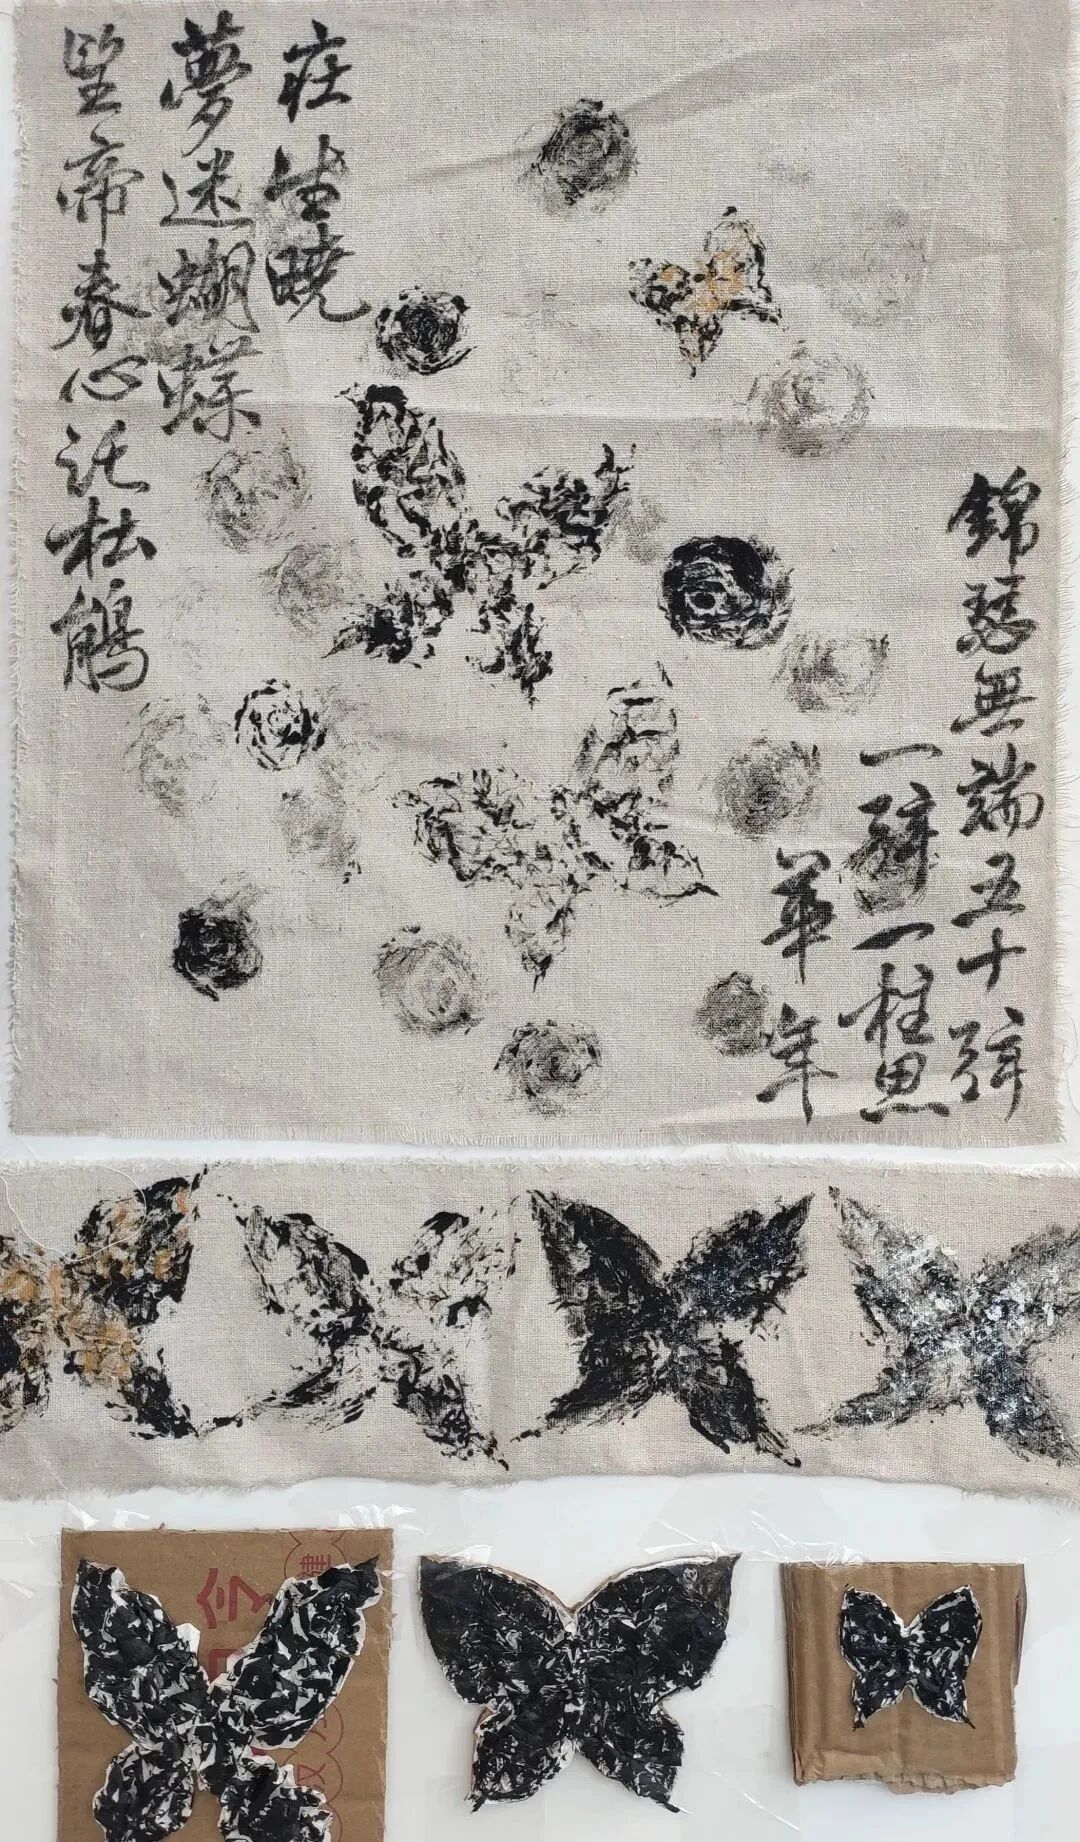 錦瑟無端五十弦
一弦一柱思
華年
庄生曉
夢迷蝴蝶
望帝春心託杜鵑